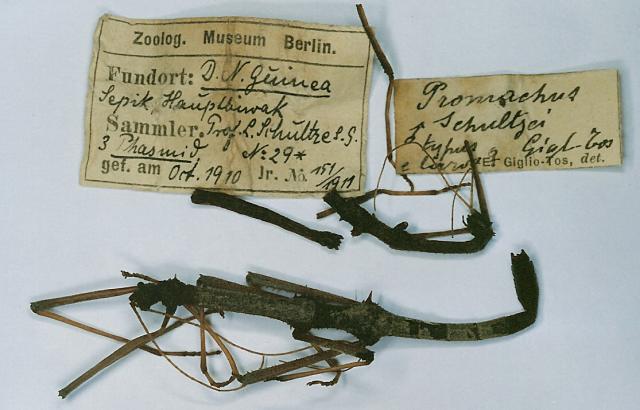 Zoolog. Museum Berlin.
Fundort: D. N. Guinea
Sepik, Hauptbiwak
Sammler. Prof. L. Schultze S. G.
3 Phasmid No 29*
gef. am Oct. 1910 Jr. No. 151/1911
Promachus
Schultzei
typus ♀ Gigl-Tos
E. Giglio-Tos, det.